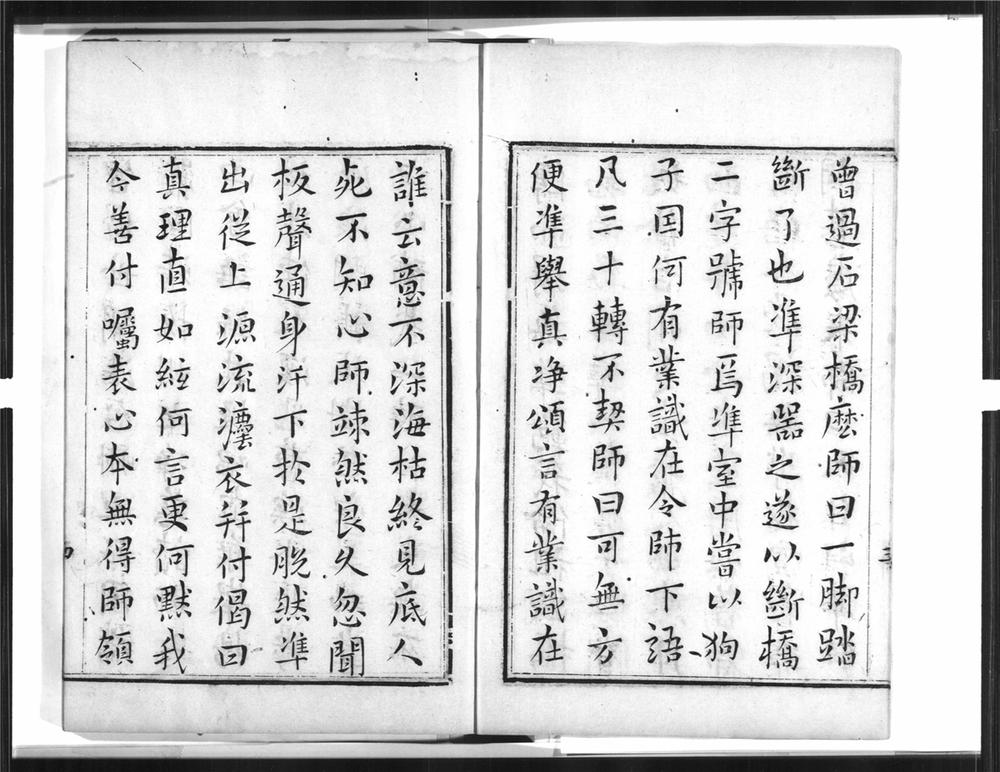 曾過石梁橋麽師曰一脚踏
斷了也準深器之遂以斷橋
二字號師爲準室中嘗以狗
子因何有業識在令師下語
凡三十轉不契師曰可無方
便準舉真净頌言有業識在
誰云意不深海枯終見底人
死不知心師竦然良久忽聞
板聲通身汗下於是脱然準
出從上源流灋衣并付偈曰
真理直如絃何言更何默我
今善付囑表心本無得師領